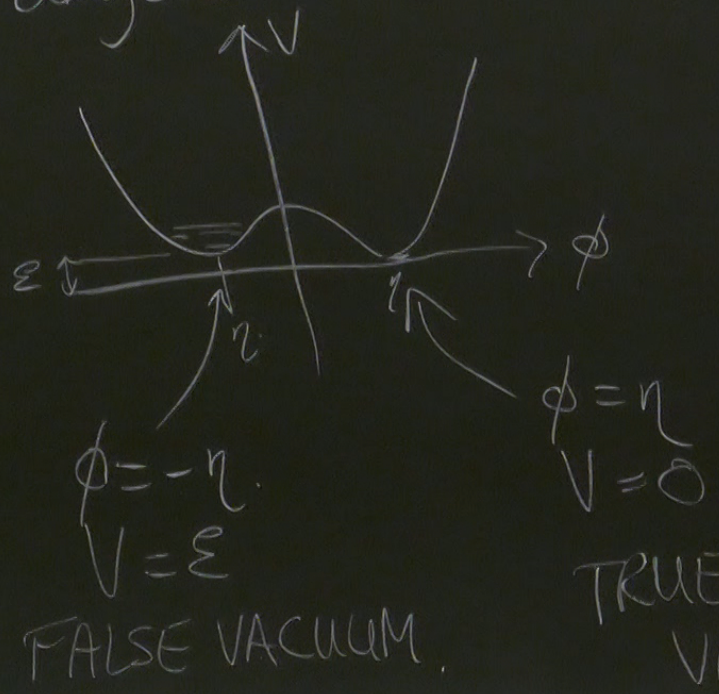 V
ε
φ
η
η
φ = -η.
V = ε
FALSE VACUUM.
φ = η
V = 0
TRUE
V